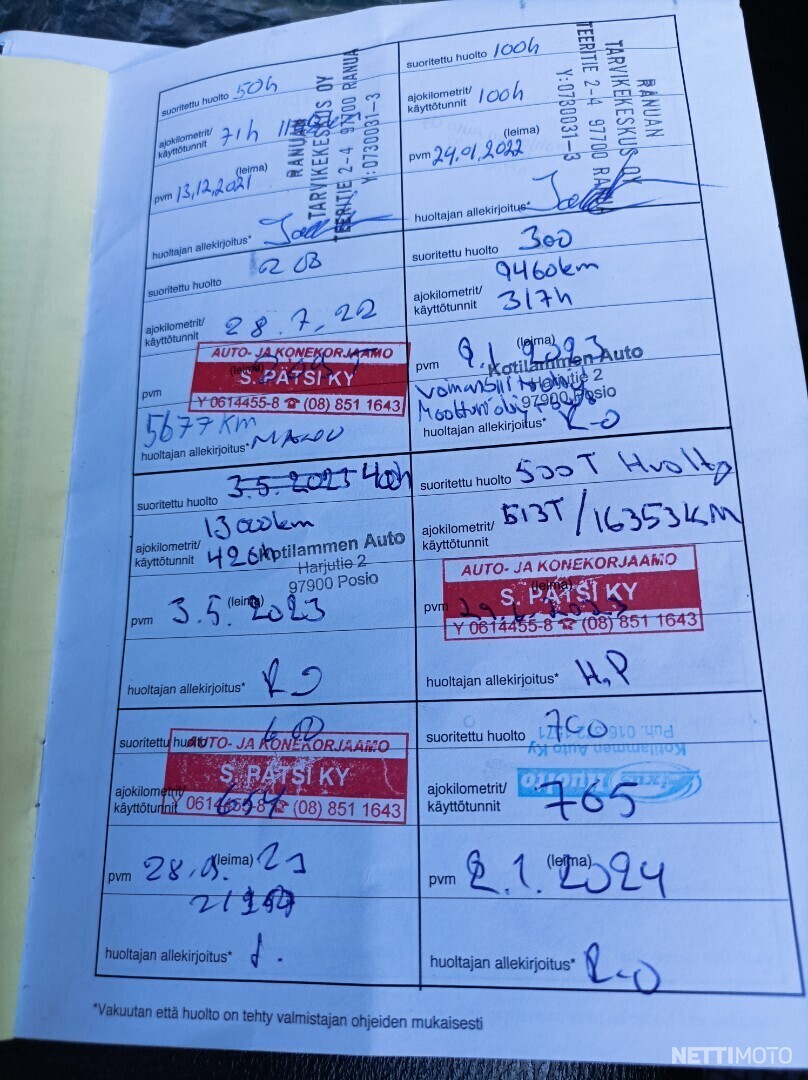 suoritettu huolto 50h
ajokilometrit/
käyttötunnit 71h
(leima)
pvm 13,12,2021
huoltajan allekirjoitus*
RANUAN
TARVIKEKESKUS OY
TEERITIE 2-4 97700 RANUA
Y:0730031-3
suoritettu huolto 100h
ajokilometrit/
käyttötunnit 100h
(leima)
pvm 24.01.2022
huoltajan allekirjoitus*
RANUAN
TARVIKEKESKUS OY
TEERITIE 2-4 97700 RANUA
Y:0730031-3
suoritettu huolto
ajokilometrit/
käyttötunnit 28.7.22
AUTO- JA KONEKORJAAMO
(leima)
S. PÄTSI KY
pvm
Y 0614455-8 ☎ (08) 851 1643
5677 km
huoltajan allekirjoitus*
suoritettu huolto 300
9460km
ajokilometrit/
käyttötunnit 317h
(leima)
pvm 2.1.2023
Kotilammen Auto
Harjutie 2
97900 Posio
huoltajan allekirjoitus* R-O
suoritettu huolto 3.5.2023 400h
13000km
ajokilometrit/
käyttötunnit 426h
Kotilammen Auto
Harjutie 2
97900 Posio
(leima)
pvm 3.5.2023
huoltajan allekirjoitus*
suoritettu huolto 500T Huolto
ajokilometrit/
käyttötunnit 513T/16353KM
AUTO- JA KONEKORJAAMO
(leima)
S. PÄTSI KY
pvm
Y 0614455-8 ☎ (08) 851 1643
huoltajan allekirjoitus* H.P
suoritettu huolto 600
AUTO- JA KONEKORJAAMO
S. PÄTSI KY
ajokilometrit/
käyttötunnit
Y 0614455-8 ☎ (08) 851 1643
(leima)
pvm
huoltajan allekirjoitus*
suoritettu huolto 700
Kotilammen Auto Ky
Fixus Huolto
ajokilometrit/
käyttötunnit 765
(leima)
pvm 2.1.2024
huoltajan allekirjoitus* R-O
*Vakuutan että huolto on tehty valmistajan ohjeiden mukaisesti
NETTIMOTO